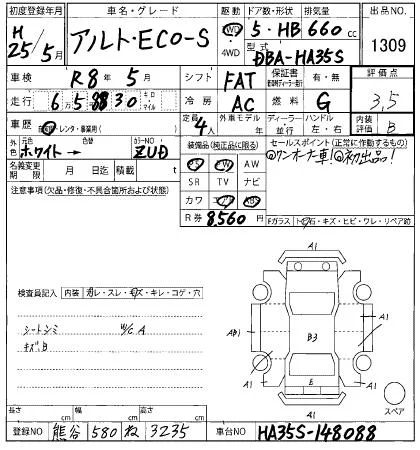 初度登録年月 車名・グレード 駆動 ドア数・形状 排気量 出品NO.
H 25/5月 アルト・ECO-S 2WD 4WD 5・HB 660cc 1309
型式 DBA-HA35S
車検 R8年5月 シフト FAT 保証書 有・無 評価点 3.5
走行 6万5 30 キロ マイル 冷房 AC 燃料 G
車歴 自家用・レンタ・事業用( ) 定員 4人 外車モデル 年 ディーラー 並行 ハンドル 左・右 内装評価 B
外色 元色 ホワイト→ 色替 カラーNO ZUD 装備品(純正品に限る) セールスポイント(正常に作動するもの)
PS PW AW ①ワンオーナー車!②初出品!
名義変更期限 月 日迄 積載 t SR TV ナビ
注意事項(欠品・修復・不具合箇所および状態) カワ エアB ABS
R券 8,560円 Fガラス トビ石・キズ・ヒビ・ワレ・リペア跡
A1
検査員記入 内装 ヨゴレ・スレ・キズ・キレ・コゲ・穴
シートシミ W/C A
キズB
AB1 B3 A1
E
A1
スペア
長さ cm 幅 cm 高さ cm
登録NO 熊谷 580 ね 3235 車台NO HA35S-148088